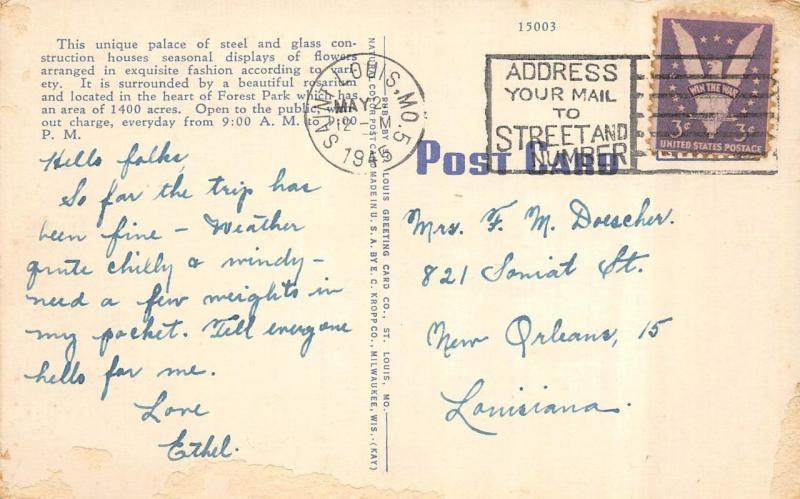 15003
This unique palace of steel and glass con-
struction houses seasonal displays of flowers
arranged in exquisite fashion according to vari-
ety. It is surrounded by a beautiful rosarium
and located in the heart of Forest Park which has
an area of 1400 acres. Open to the public, with-
out charge, everyday from 9:00 A. M. to 9:00
P. M.
Hello folks,
So far the trip has
been fine – Weather
quite chilly & windy –
need a few weights in
my pocket. Tell everyone
hello for me.
Love
Ethel.
PUB. BY ST. LOUIS GREETING CARD CO., ST. LOUIS, MO.
NATURAL COLOR POST CARD MADE IN U. S. A. BY E. C. KROPP CO., MILWAUKEE, WIS. (KAY)
SAINT LOUIS, MO. 5
MAY
12 - M
194
ADDRESS
YOUR MAIL
TO
STREET AND
NUMBER
WIN THE WAR
3¢ 3¢
UNITED STATES POSTAGE
POST CARD
Mrs. F. M. Doescher.
821 Soniat St.
New Orleans, 15
Louisiana.